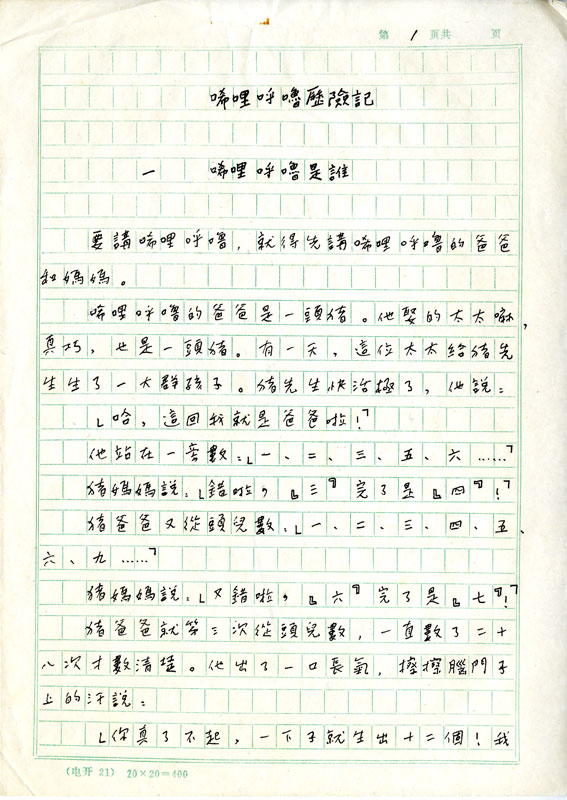 第 1 页共 页
唏哩呼嚕歷險記
一 唏哩呼嚕是誰
要講唏哩呼嚕，就得先講唏哩呼嚕的爸爸
和媽媽。
唏哩呼嚕的爸爸是一頭猪。他娶的太太嘛，
真巧，也是一頭猪。有一天，這位太太給猪先
生生了一大群孩子。猪先生快活極了，他說：
「哈，這回我就是爸爸啦！」
他站在一旁數：「一、二、三、五、六……」
猪媽媽說：「錯啦，『三』完了是『四』！」
猪爸爸又從頭兒數：「一、二、三、四、五、
六、九……」
猪媽媽說：「又錯啦，『六』完了是『七』！」
猪爸爸就第三次從頭兒數，一直數了二十
八次才數清楚。他出了一口長氣，擦擦腦門子
上的汗說：
「你真了不起，一下子就生出十二個！我
(电开 21) 20×20=400